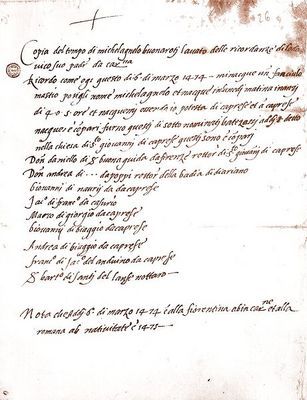 26
Copia del tempo di michelagnolo buonarotj lavato delle ricordanze di lodo
vico suo padre da car.na
Ricordo come ogi questo di 6 di marzo 1474 mi nacque un fanciullo
mastio posigli nome michelagnolo et nacque inluned matina inanzj
di 4 o 5 ore et nacquemj essendo io potesta di caprese et a caprese
nacque e cōpari furno questi di sotto nominatj batezossj addj 8 detto
nella chiesa di sto giovannj di caprese questi sono e cōparj
Don daniello di s buona guida da firenze rettor di sto giovānj di caprese
Don andrea di ... da poppi rettor della badia di diariano
Giovannj di naurj da caprese
Jaco di franco da casurio
Marco di giorgio da caprese
Giovannj di biaggio da caprese
Andrea di biaggio da caprese
Franco di Jaco del anduino da caprese
S barto di santj del lanse nottaro
Nota che addj 6 di marzo 1474 è alla fiorentina ab incarne et alla
romana ab nativitate è 1475